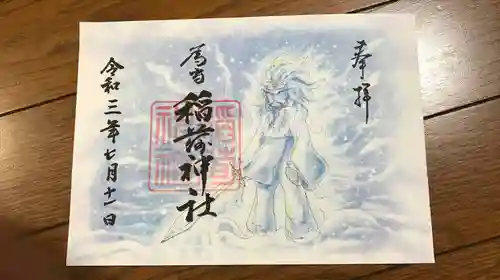 奉拝
為当
稲荷神社
令和三年七月十一日